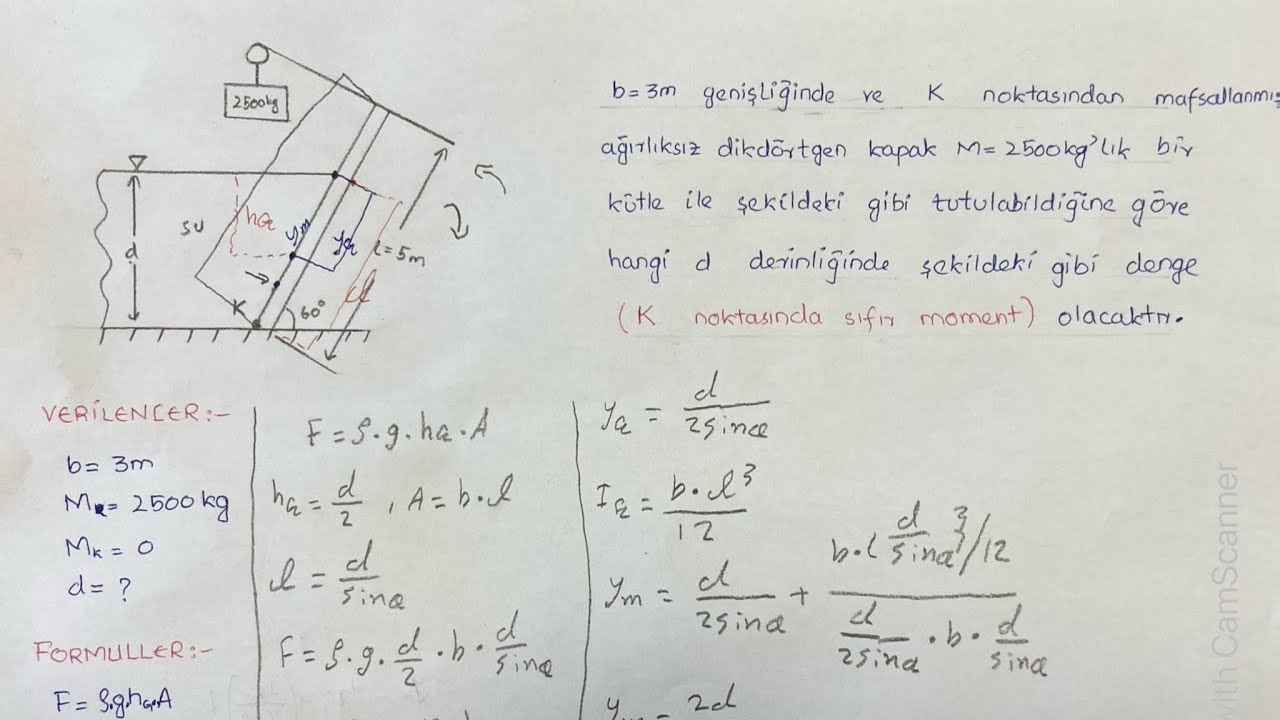 2500kg
su
d
hG
ym
yG
l=5m
l
K
60°
b=3m genişliğinde ve K noktasından mafsallanmış
ağırlıksız dikdörtgen kapak M=2500kg'lık bir
kütle ile şekildeki gibi tutulabildiğine göre
hangi d derinliğinde şekildeki gibi denge
(K noktasında sıfır moment) olacaktır.
VERİLENLER:-
b= 3m
Mk= 2500kg
Mk= 0
d= ?
FORMULLER:-
F= ρ.g.hG.A
F=ρ.g.hG.A
hG = d/2 , A=b.l
l = d/sinα
F=ρ.g.d/2.b.d/sinα
yG = d/2sinα
IG = b.l³/12
ym = d/2sinα + b.(d/sinα)³/12 / d/2sinα.b.d/sinα
2d
with CamScanner